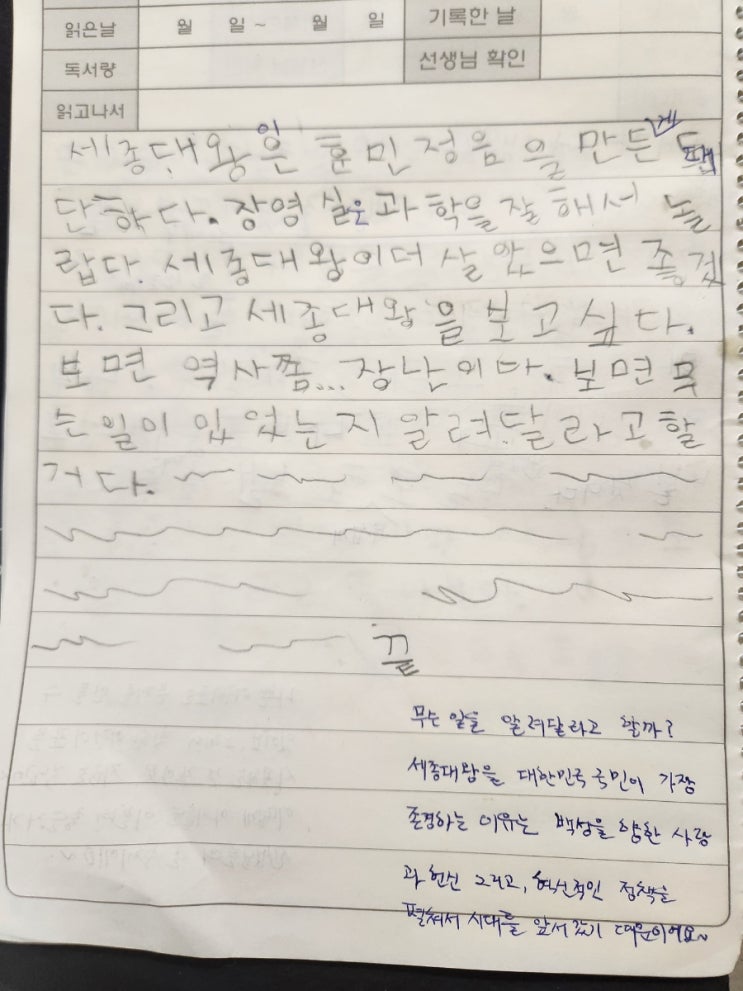 읽은날 월 일 ~ 월 일 기록한 날
독서량 선생님 확인
읽고나서
세종대왕은 훈민정음을 만든 게
단하다. 장영실은 과학을 잘해서 놀
랍다. 세종대왕이 더 살았으면 좋겠
다. 그리고 세종대왕을 보고 싶다.
보면 역사쫌... 장난이다. 보면 무
슨 일이 있었는지 알려달라고 할
거다.
끝
무슨 일을 알려달라고 할까?
세종대왕을 대한민국 국민이 가장
존경하는 이유는 백성을 향한 사랑
과 헌신 그리고, 혁신적인 정책을
펼쳐서 시대를 앞서갔기 때문이에요~